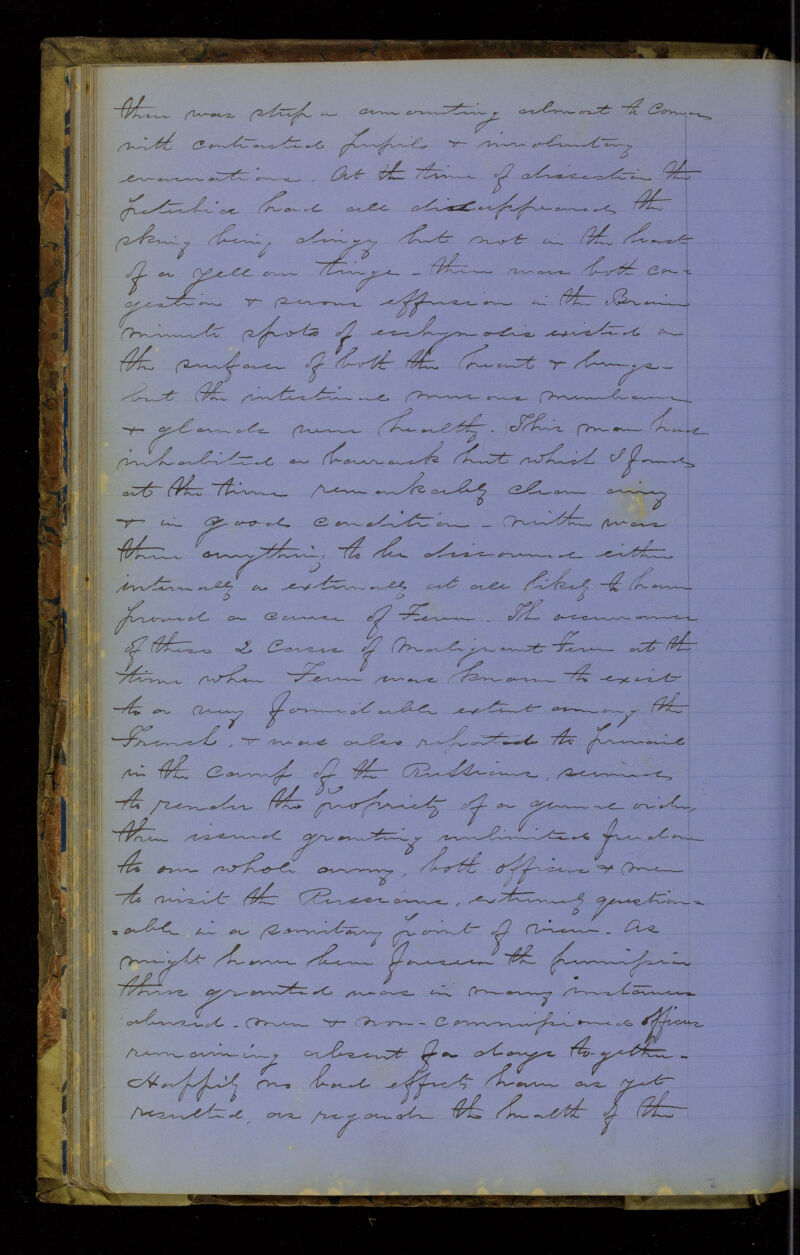 there was stupor amounting almost to coma
with contracted pupils & involuntary
evacuations. At the time of dissection the
Petechiæ had all disappeared, the
skin being dingy but not in the least
of a yellow tinge - there was both con=
gestion & serous effusion in the Brain
minute spots of ecchymosis existed on
the surface of both the heart & lungs -
but the intestinal mucous membrane
& glands were healthy. This man had
inhabited a barrack hut which I found
at the time remarkably clean airy
& in good condition - neither was
there anything to be discovered either
internally or externally at all likely to have
proved a cause of Fever. The occurrence
of these 2 Cases of Malignant Fever at the
time when Fever was known to exist
to a very formidable extent among the
French, & was also reported to prevail
in the camp of the Russians, serves
to render the propriety of a general order,
then issued granting unlimited freedom
to our whole army, both officers & men
to visit the Russians, extremely question=
=able in a sanitary point of view. As
might have been foreseen the permission
thus granted was in many instances
abused - men & non-commissioned officers
remaining absent for days together -
Happily no bad effects have as yet
resulted, as regards the health of the